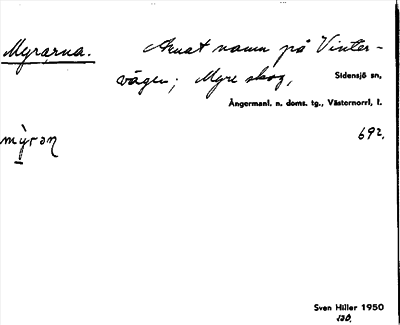 Myrarna. Annat namn på Vinter-
vägen; Myre skog, Sidensjö sn,
Ångermanl. n. doms. tg., Västernorrl, l.
692.
Sven Hiller 1950
120.